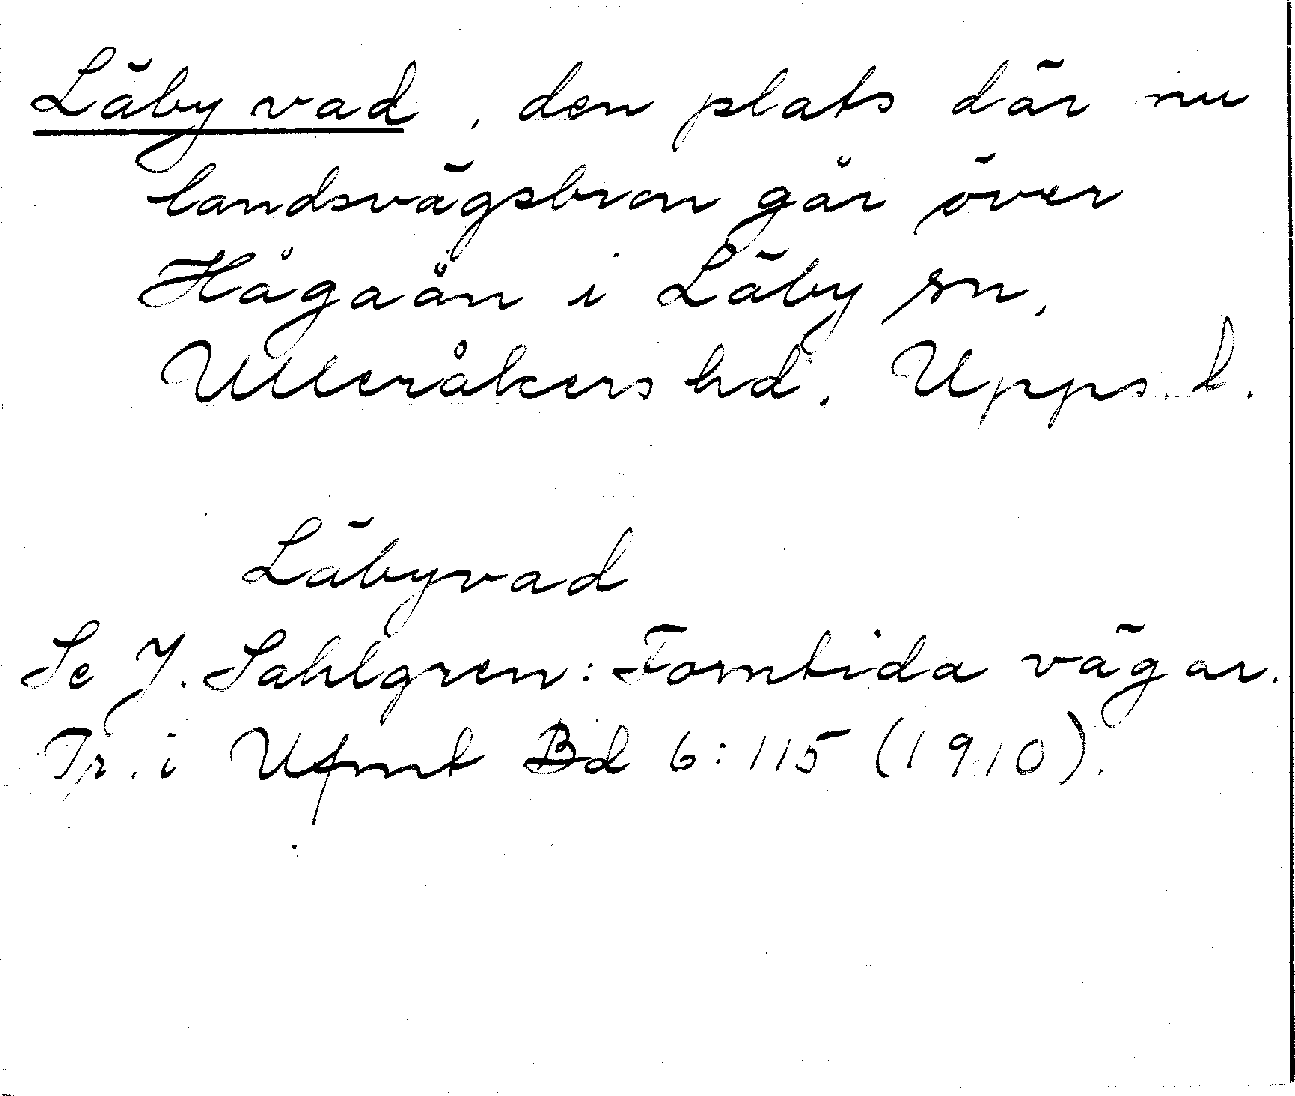 Läby vad, den plats där nu
landsvägsbron går över
Hågaån i Läby sn,
Ulleråkers hd, Upps. l.
Läbyvad
Se J. Sahlgren: Forntida vägar.
Tr. i Ufmt Bd 6:115 (1910).